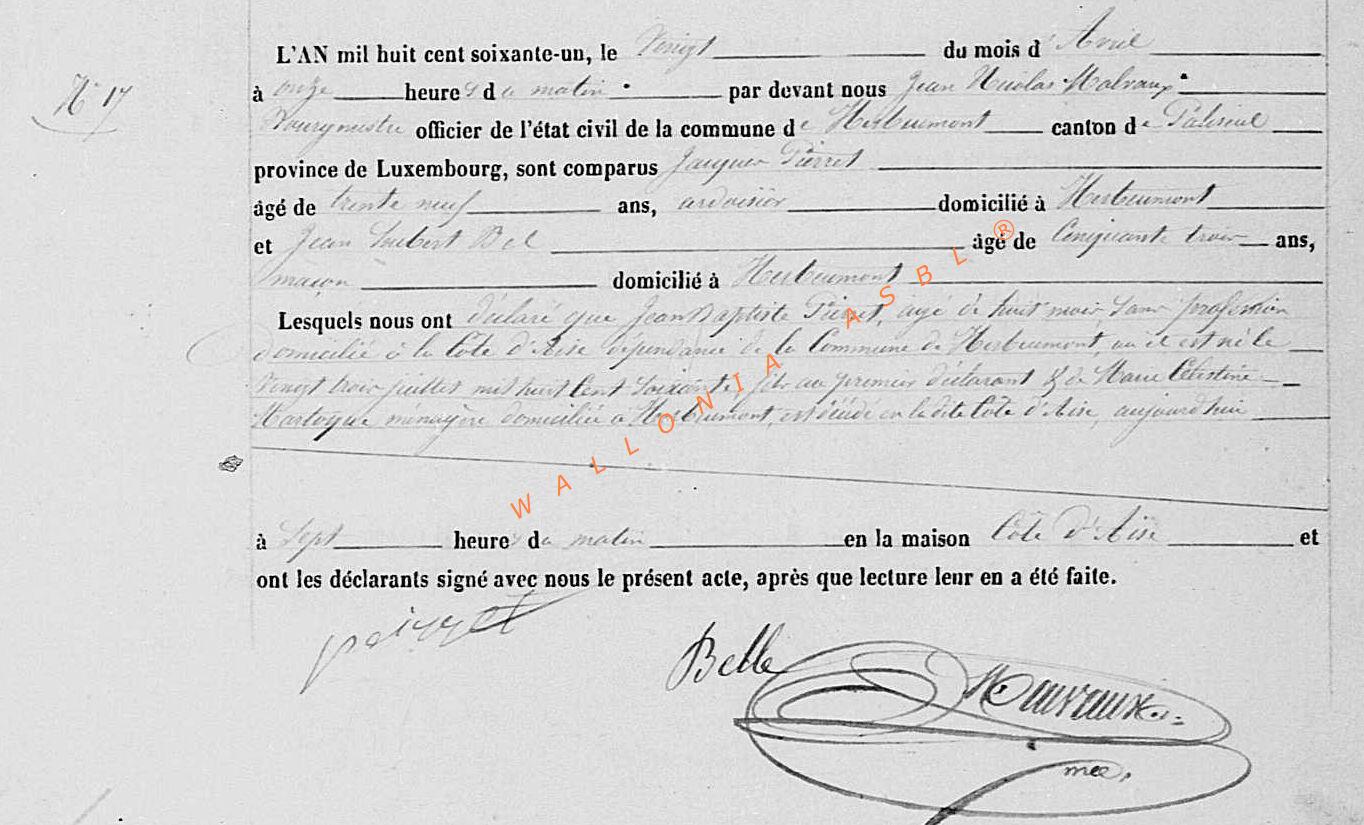 L'AN mil huit cent soixante-un, le Vingt du mois d' Avril
N° 17
à onze heures du matin par devant nous Jean Nicolas Malvaux
Bourgmestre officier de l'état civil de la commune de Herbeumont canton de Paliseul
province de Luxembourg, sont comparus Jacques Pierret
âgé de trente neuf ans, ardoisier domicilié à Herbeumont
et Jean Hubert Bel âgé de Cinquante trois ans,
maçon domicilié à Herbeumont
Lesquels nous ont déclaré que Jean Baptiste Pierret, âgé de huit mois sans profession
domicilié à la Côte d'Aise dépendance de la Commune de Herbeumont, où il est né le
Vingt trois juillet mil huit Cent Soixante, fils au premier déclarant & de Marie Célestine
ménagère domiciliée à Herbeumont, est décédé en la dite Côte d'Aise, aujourd'hui
à Sept heures du matin en la maison Côte d'Aise et
ont les déclarants signé avec nous le présent acte, après que lecture leur en a été faite.
Belle
WALLONIA ASBL ®